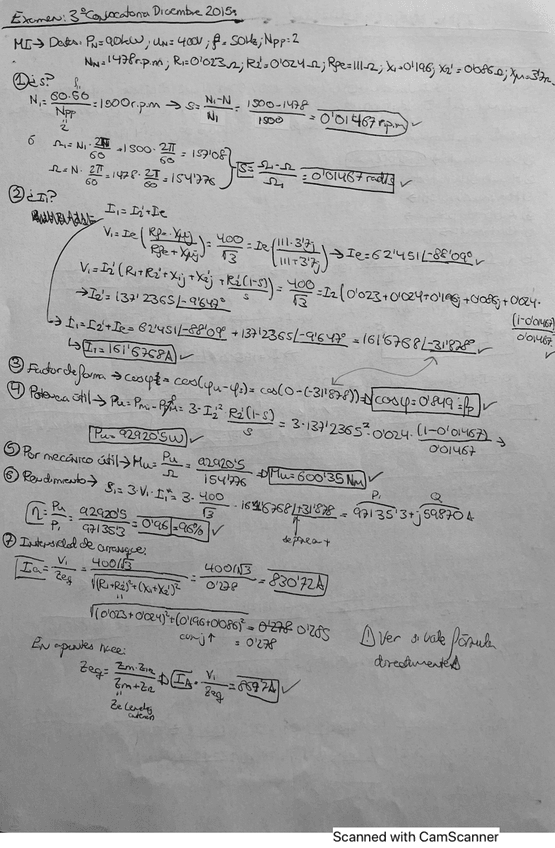 Examen: 3ª Convocatoria Diciembre 2015
MI → Datos: PN=90kW, UN=400V, f=50Hz, Npp=2
NN=1478r.p.m, R1=0'023Ω, R2'=0'024Ω, Rfe=111Ω, X1=0'196, X2'=0'086Ω, Xμ=3'7Ω
① ¿s?
N1 = 60·f1/Npp = 1500r.p.m → s = (N1-N)/N1 = (1500-1478)/1500 = 0'01467 r.p.m ✓
ó Ω1 = N1·2π/60 = 1500·2π/60 = 157'08
Ω = N·2π/60 = 1478·2π/60 = 154'776
S = (Ω1-Ω)/Ω1 = 0'01467 rad/s ✓
② ¿I1?
I1 = I2'+Ie
V1 = Ie(Rfe·Xμj/(Rfe+Xμj)) = 400/√3 = Ie(111·3'7j/(111+3'7j)) → Ie = 62'451/-88'09º ✓
V1 = I2'(R1+R2'+X1j+X2'j+R2'(1-s)/s) = 400/√3 = I2(0'023+0'024+0'196j+0'086j+0'024·(1-0'01467)/0'01467)
→ I2' = 137'2365/-9'647º ✓
→ I1 = I2'+Ie = 62'451/-88'09º + 137'2365/-9'647º = 161'6768/-31'878º ✓
↳ I1 = 161'6768A ✓
③ Factor de forma → cosφ = cos(φu-φi) = cos(0-(-31'878)) ⇒ cosφ = 0'849 = fp ✓
④ Potencia útil → Pu = Pmi - Pm = 3·I2'²·R2'(1-s)/s = 3·137'2365²·0'024·(1-0'01467)/0'01467 →
Pu = 92920'5W ✓
⑤ Par mecánico útil → Mu = Pu/Ω = 92920'5/154'776 ⇒ Mu = 600'35 Nm ✓
⑥ Rendimiento → S1 = 3·V1·I1* = 3·400/√3·161'6768/+31'878 = 97135'3 + j59870
P1 Q
se pasa a +
η = Pu/P1 = 92920'5/97135'3 = 0'96 = 96% ✓
⑦ Intensidad de arranque:
Ia = V1/Zeq = 400/√3/√((R1+R2')²+(X1+X2')²) = 400/√3/0'278 = 830'72A
√((0'023+0'024)²+(0'196+0'086)²) = 0'278 0'285
con j↑ = 0'278
⚠ Ver si vale fórmula
directamente ⚠
En apuntes hace:
Zeq = Zm·Z12/(Zm+Z12) ⇒ IA = V1/Zeq = 859'7A ✓
Scanned with CamScanner